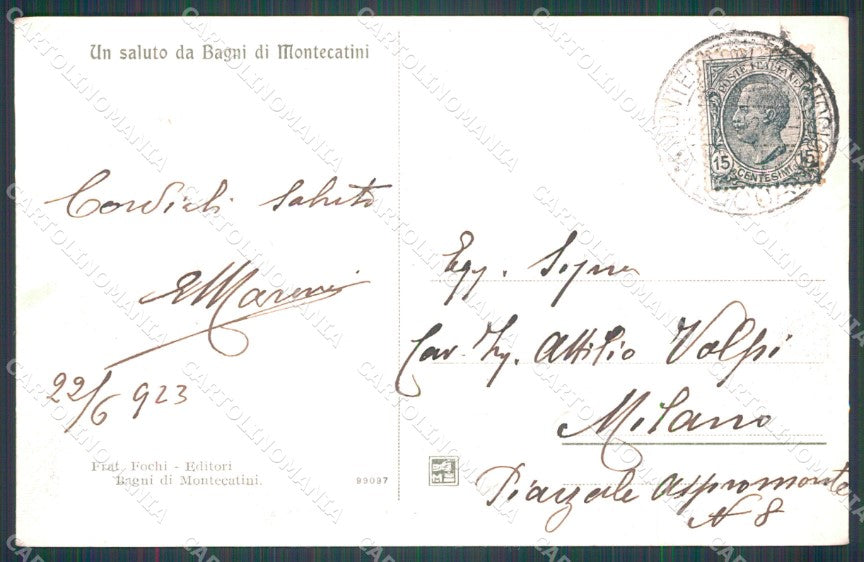 Un saluto da Bagni di Montecatini
POSTE ITALIANE
15 15
CENTESIMI
Cordiali saluti
EMarini
22/6 923
Egr. Signor
Cav. Ing. Attilio Volpi
Milano
Piazzale Aspromonte
N 8
Frat. Fochi - Editori
Bagni di Montecatini.
99097
CARTOLINOMANIA